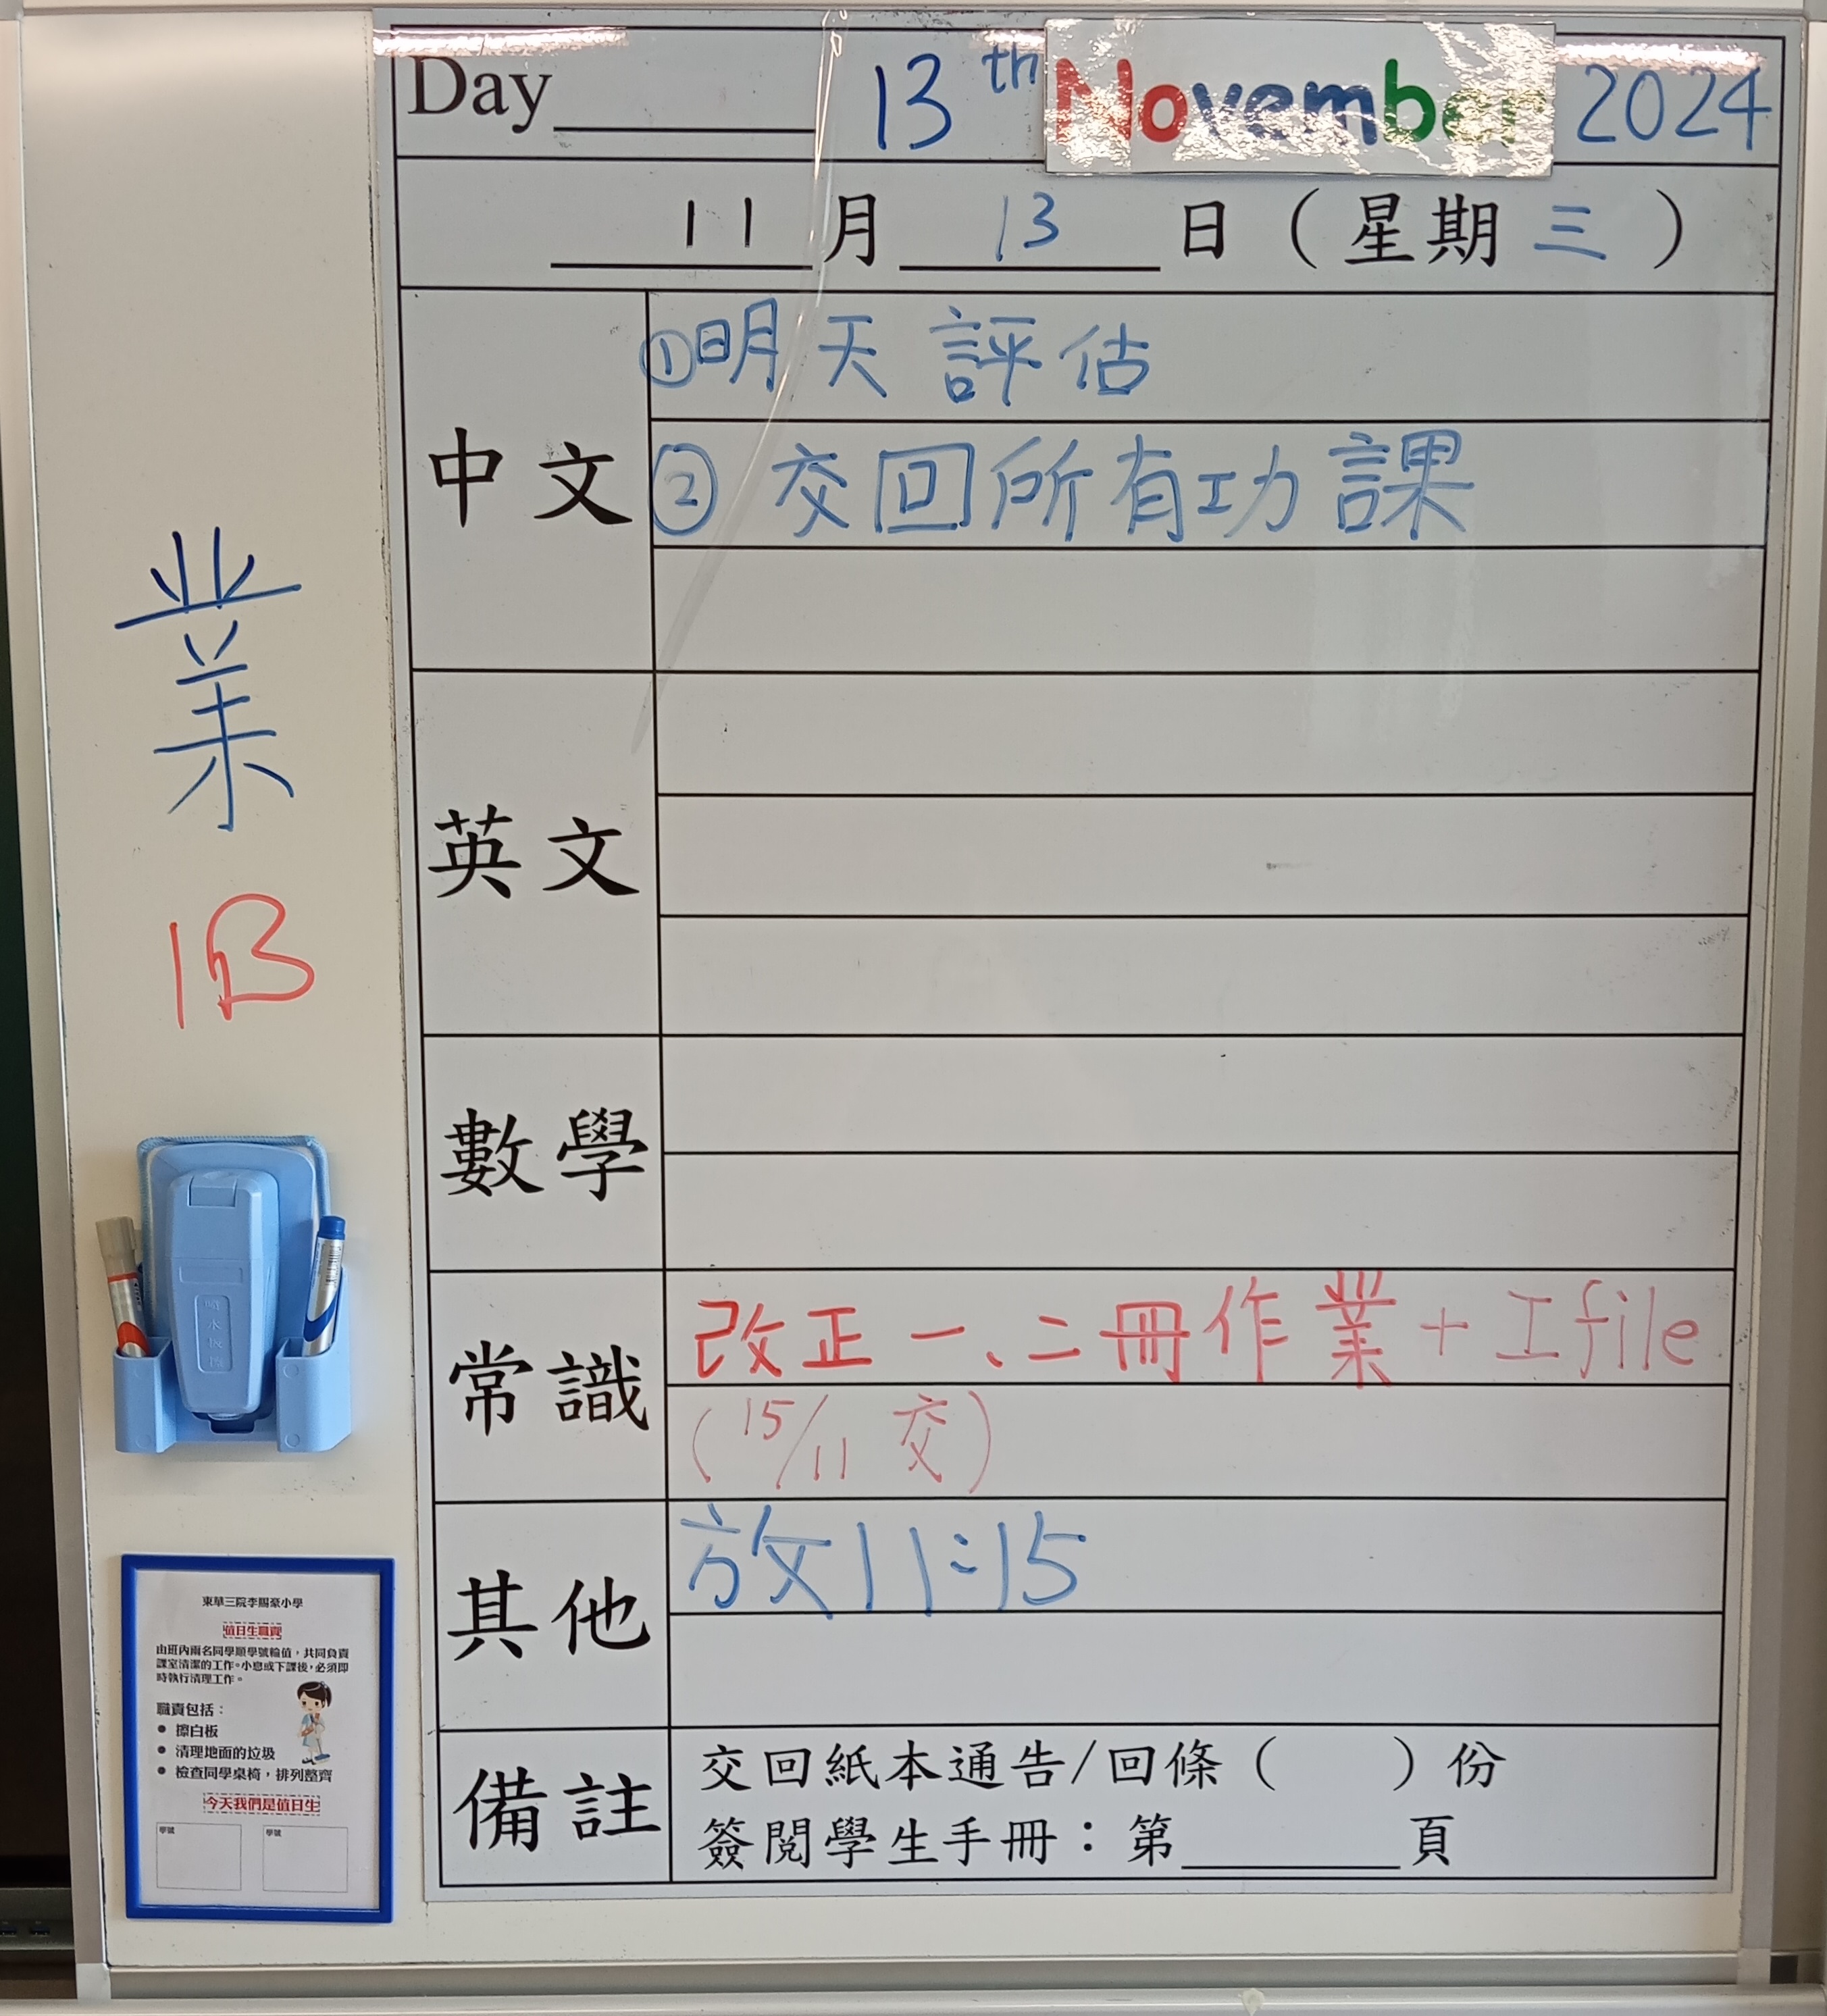 Day
13th November 2024
11月13日（星期三）
中文
①明天評估
②交回所有功課
英文
數學
常識
改正一、二冊作業+工file
(15/11交)
其他
放11:15
備註
交回紙本通告/回條（　　）份
簽閱學生手冊：第＿＿＿頁
業
1B
東華三院李賜豪小學
值日生職責
由班內兩名同學順學號輪值，共同負責
課室清潔的工作。小息或下課後，必須即
時執行清理工作。
職責包括：
● 擦白板
● 清理地面的垃圾
● 檢查同學桌椅，排列整齊
今天我們是值日生
學號
學號